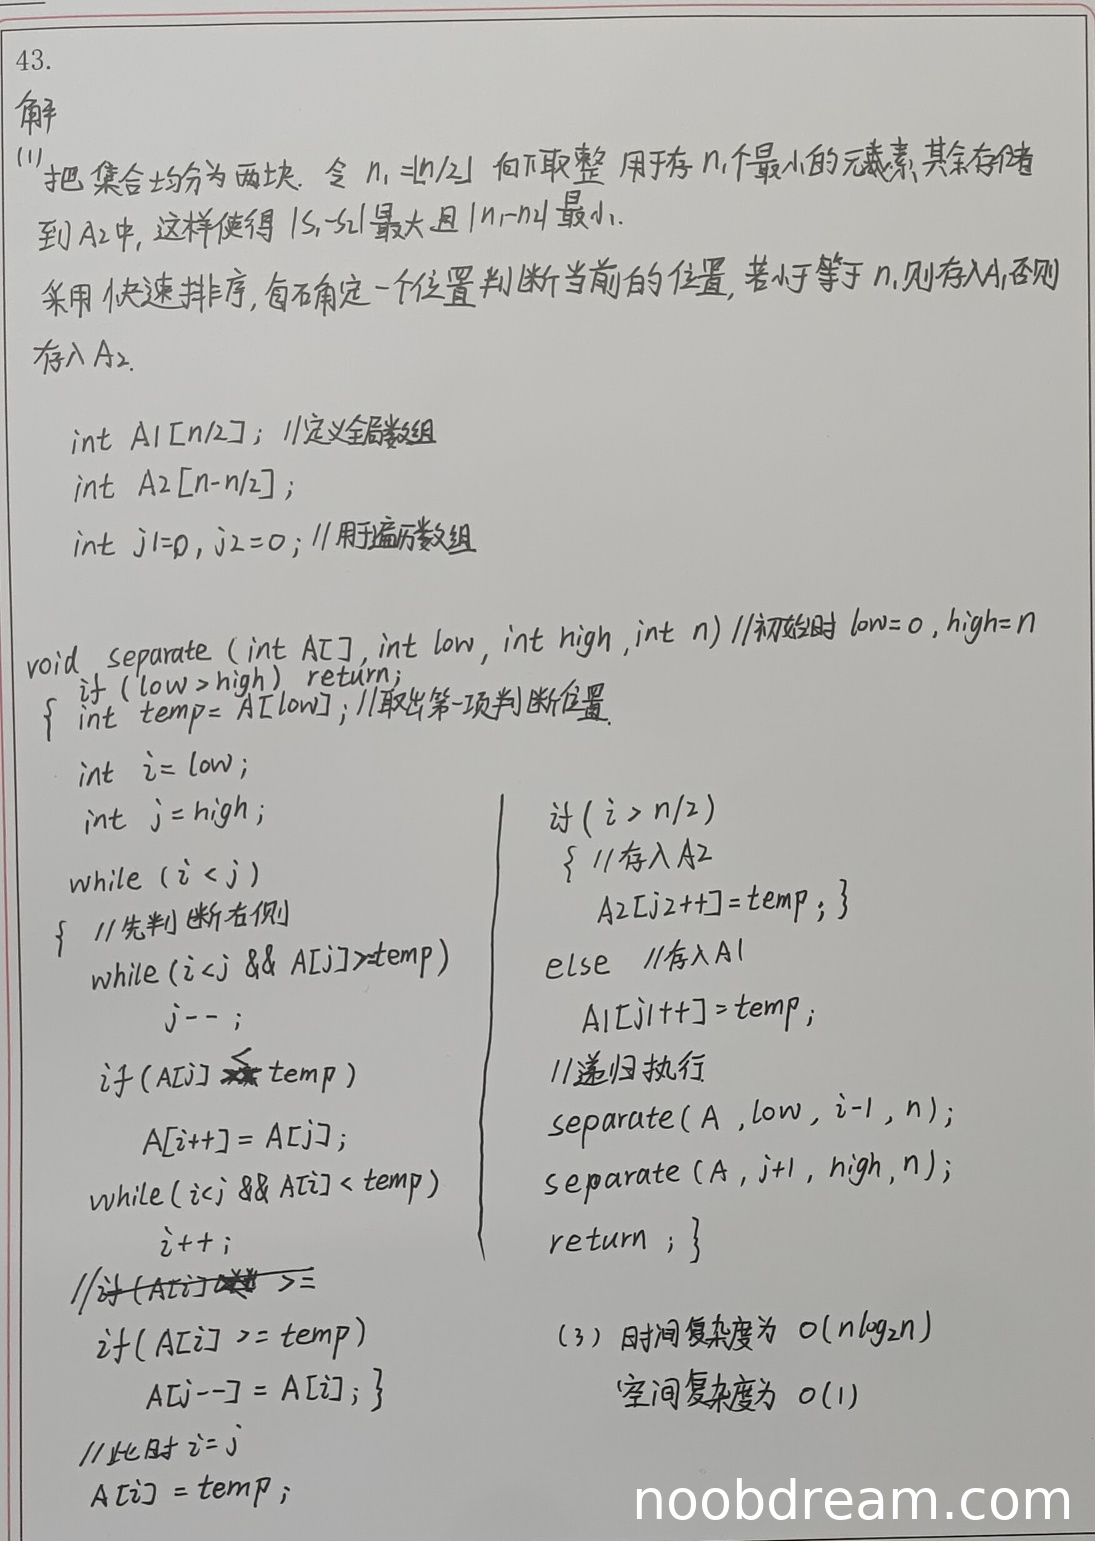 43.
解
(1)把集合均分为两块. 令 n₁=⌊n/2⌋ 向下取整 用于存 n₁个最小的元素,其余存储
到A2中, 这样使得 |S₁-S₂|最大且|n₁-n₂|最小.
采用快速排序,每确定一个位置判断当前的位置,若小于等于 n₁则存入A₁,否则
存入A₂.
int A1[n/2]; //定义全局数组
int A2[n-n/2];
int j1=0, j2=0; //用于遍历数组
void separate (int A[], int low, int high, int n) //初始时 low=0, high=n
if (low>high) return;
{ int temp= A[low]; //取出第一项判断位置.
int i= low;
int j=high;
while (i<j)
{ //先判断右侧
while(i<j && A[j]>=temp)
j--;
if(A[j] < temp)
A[i++] = A[j];
while(i<j && A[i]< temp)
i++;
//if(A[i] >=
if(A[i] >= temp)
A[j--] = A[i]; }
//此时 i=j
A[i] = temp;
if( i > n/2)
{ //存入A2
A2[j2++]=temp; }
else //存入A1
A1[j1++]=temp;
//递归执行
separate(A, low, i-1, n);
separate(A, j+1, high, n);
return ; }
(3) 时间复杂度为 O(nlog₂n)
空间复杂度为 O(1)
noobdream.com